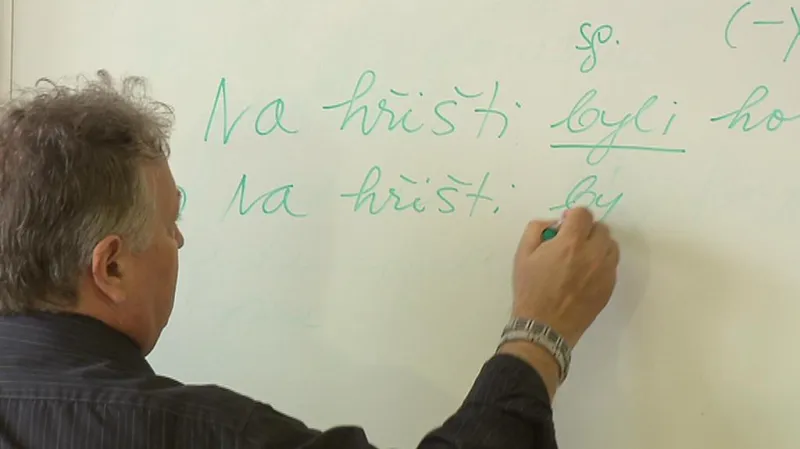 sp. (-)
Na hřišti byli ho
Na hřišti by